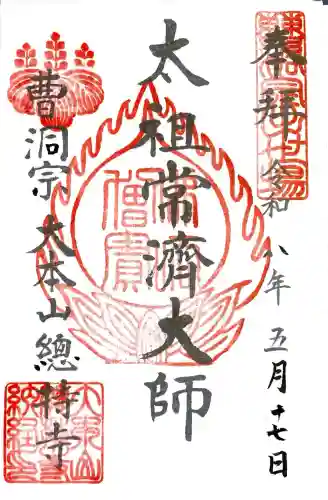 奉拝
令和八年五月十七日
太祖常濟大師
曹洞宗 大本山總持寺